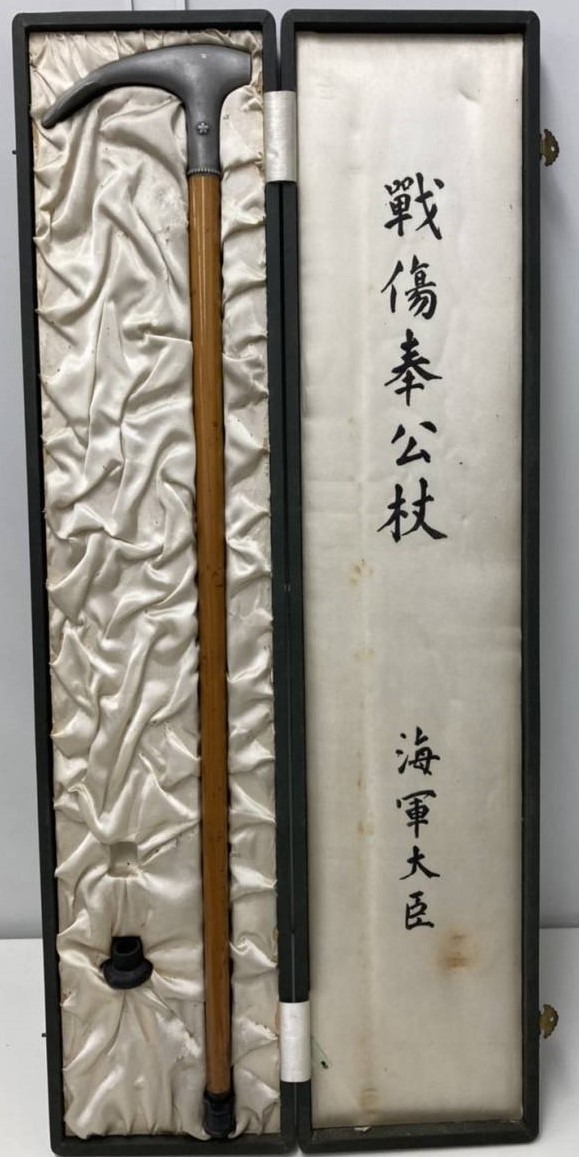 戰傷奉公杖
海軍大臣